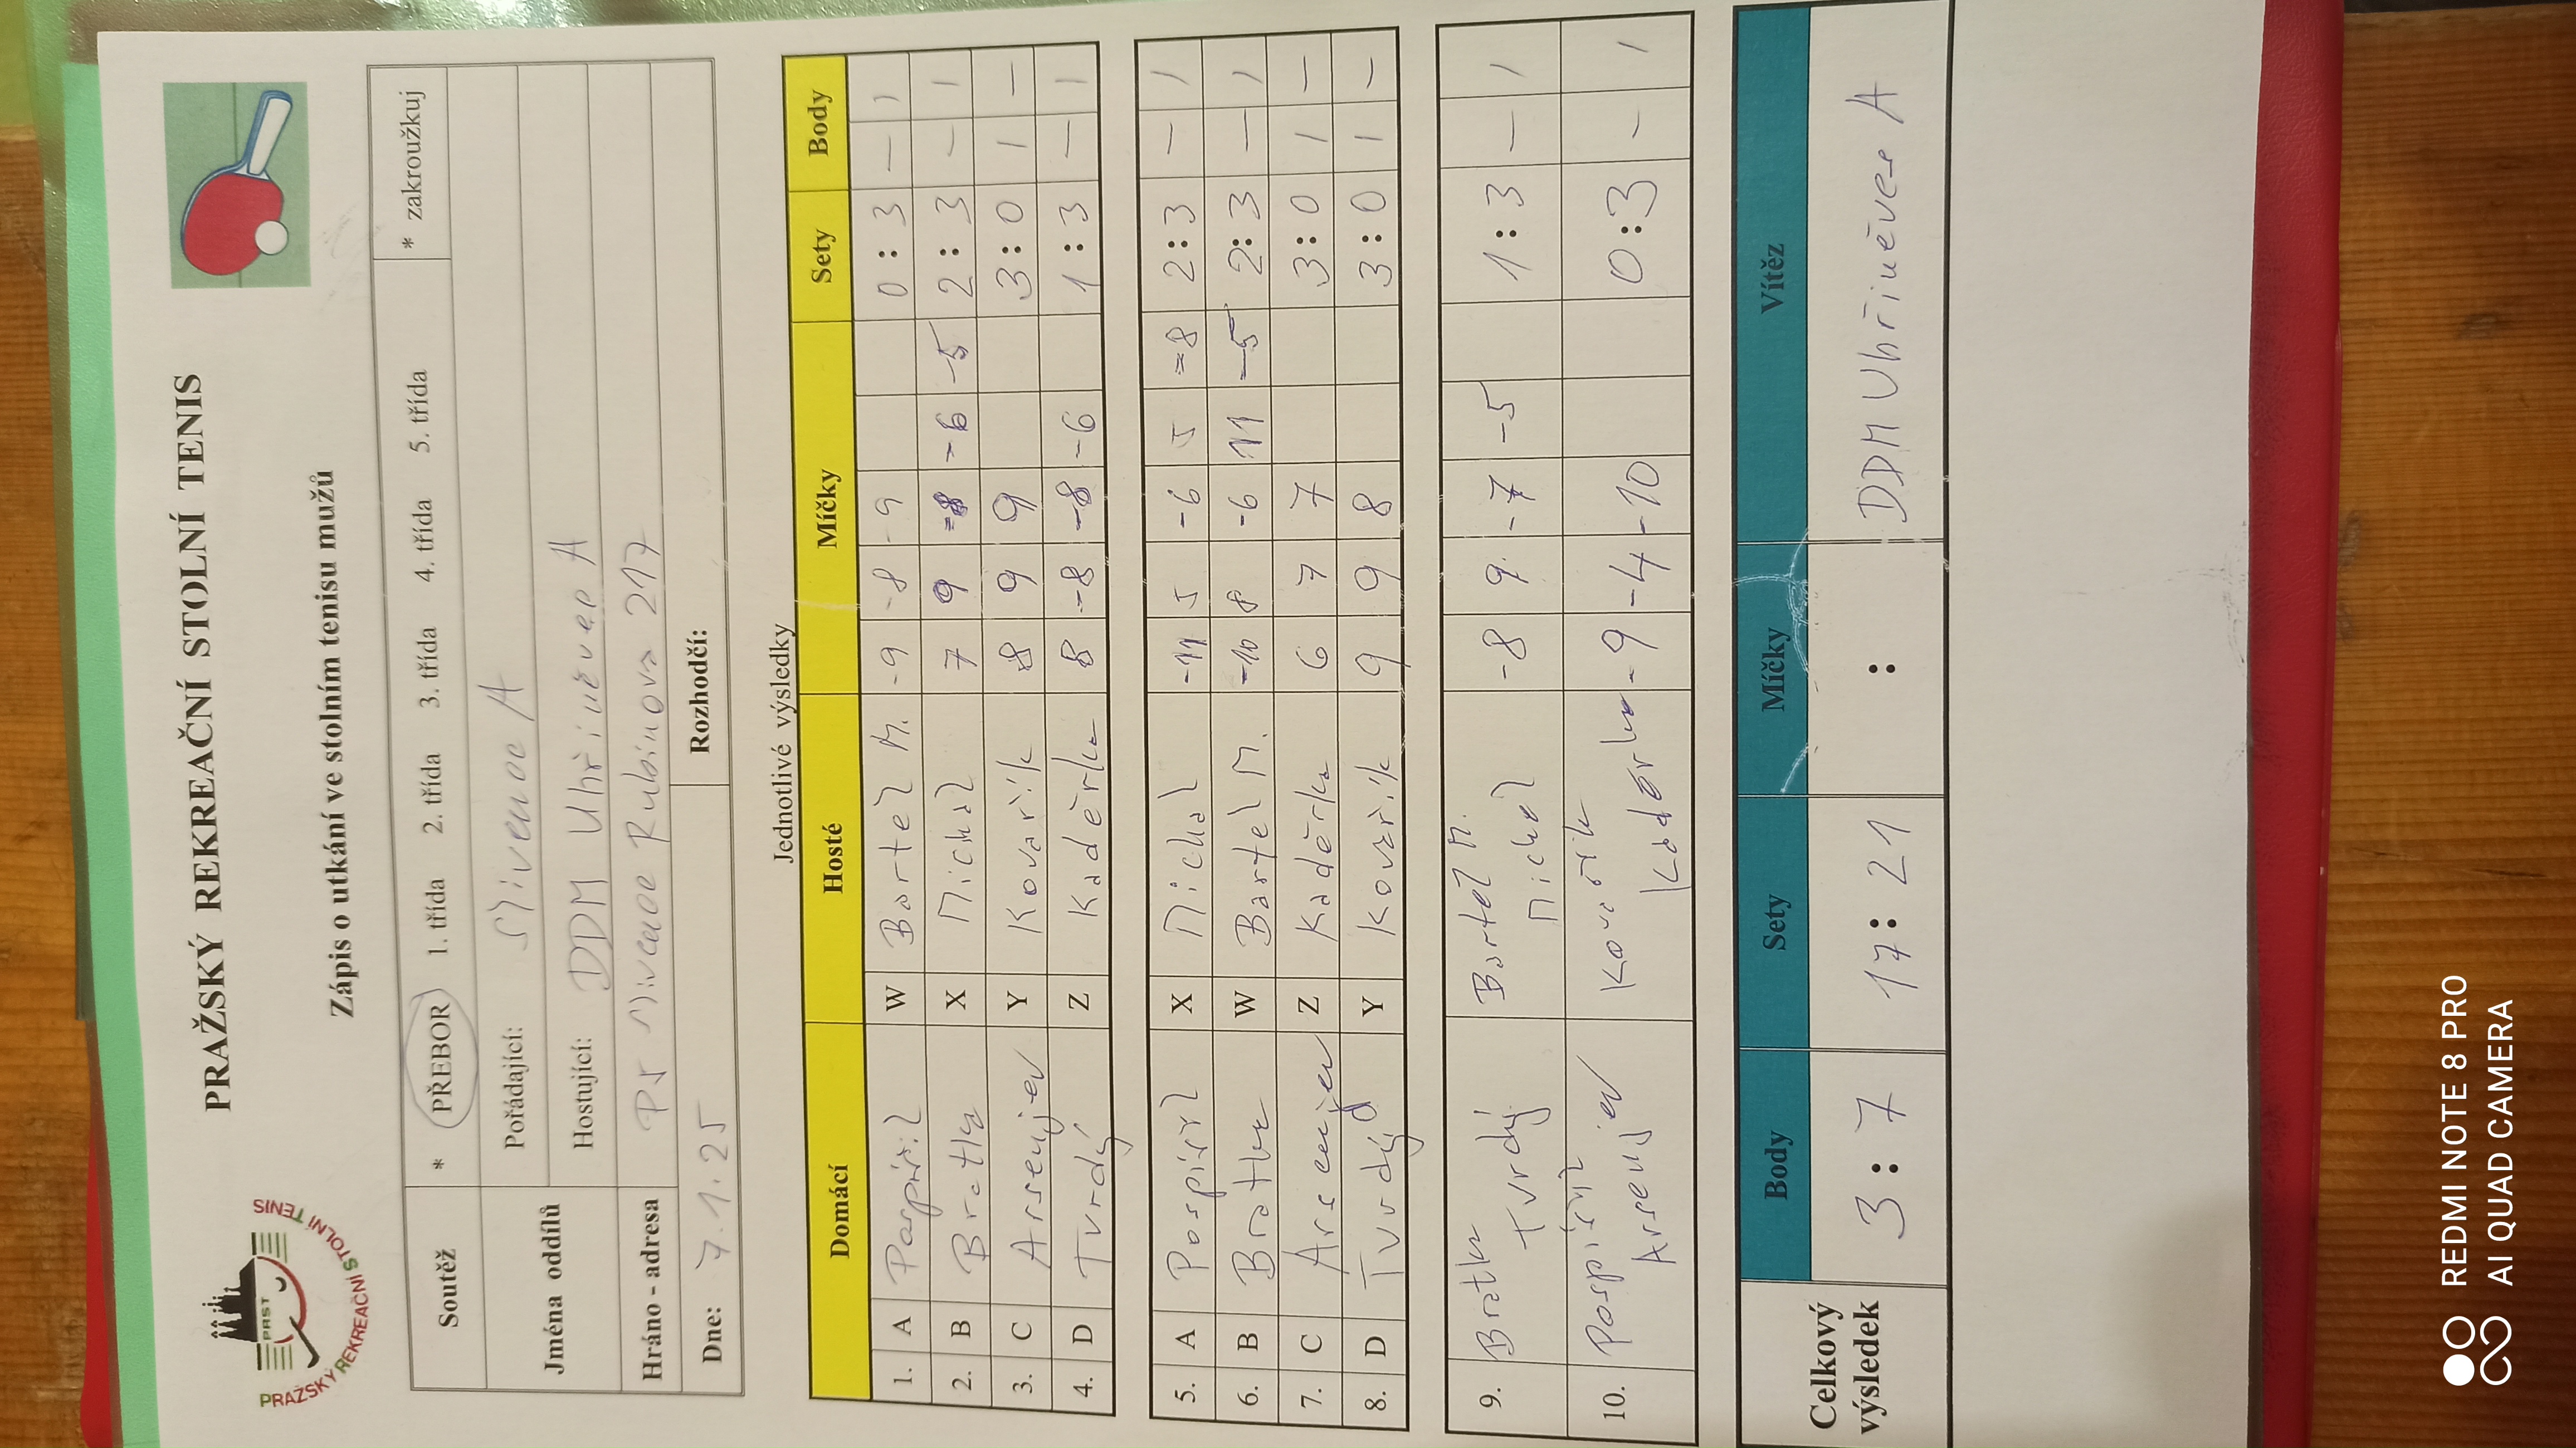 PRAŽSKÝ REKREAČNÍ STOLNÍ TENIS
PRST
PRAŽSKÝ REKREAČNÍ STOLNÍ TENIS
Zápis o utkání ve stolním tenisu mužů
Soutěž * PŘEBOR 1. třída 2. třída 3. třída 4. třída 5. třída * zakroužkuj
Jména oddílů Pořádající: Slivenec A
Hostující: DDM Uhříněves A
Hráno - adresa PS Slivenec Rubínová 217
Dne: 7.1.25 Rozhodčí:
Jednotlivé výsledky
Domácí Hosté Míčky Sety Body
1. A Pospíšil W Bartel M. -9 -8 -9 0 : 3 — 1
2. B Bratka X Michal 7 9 -8 -6 -5 2 : 3 — 1
3. C Arsenjev Y Kovařík 8 9 9 3 : 0 1 —
4. D Tvrdý Z Kaděrka 8 -8 -8 -6 1 : 3 — 1
5. A Pospíšil X Michal -11 5 -6 5 -8 2 : 3 — 1
6. B Bratka W Bartel M. -10 8 -6 11 -5 2 : 3 — 1
7. C Arsenjev Z Kaděrka 6 7 7 3 : 0 1 —
8. D Tvrdý Y Kovařík 9 9 8 3 : 0 1 —
9. Bratka Tvrdý Bartel M. Michal -8 9 -7 -5 1 : 3 — 1
10. Pospíšil Arsenjev Kovařík Kaděrka -9 -4 -10 0 : 3 - 1
Celkový výsledek Body Sety Míčky Vítěz
3 : 7 17 : 21 : DDM Uhříněves A
REDMI NOTE 8 PRO
AI QUAD CAMERA